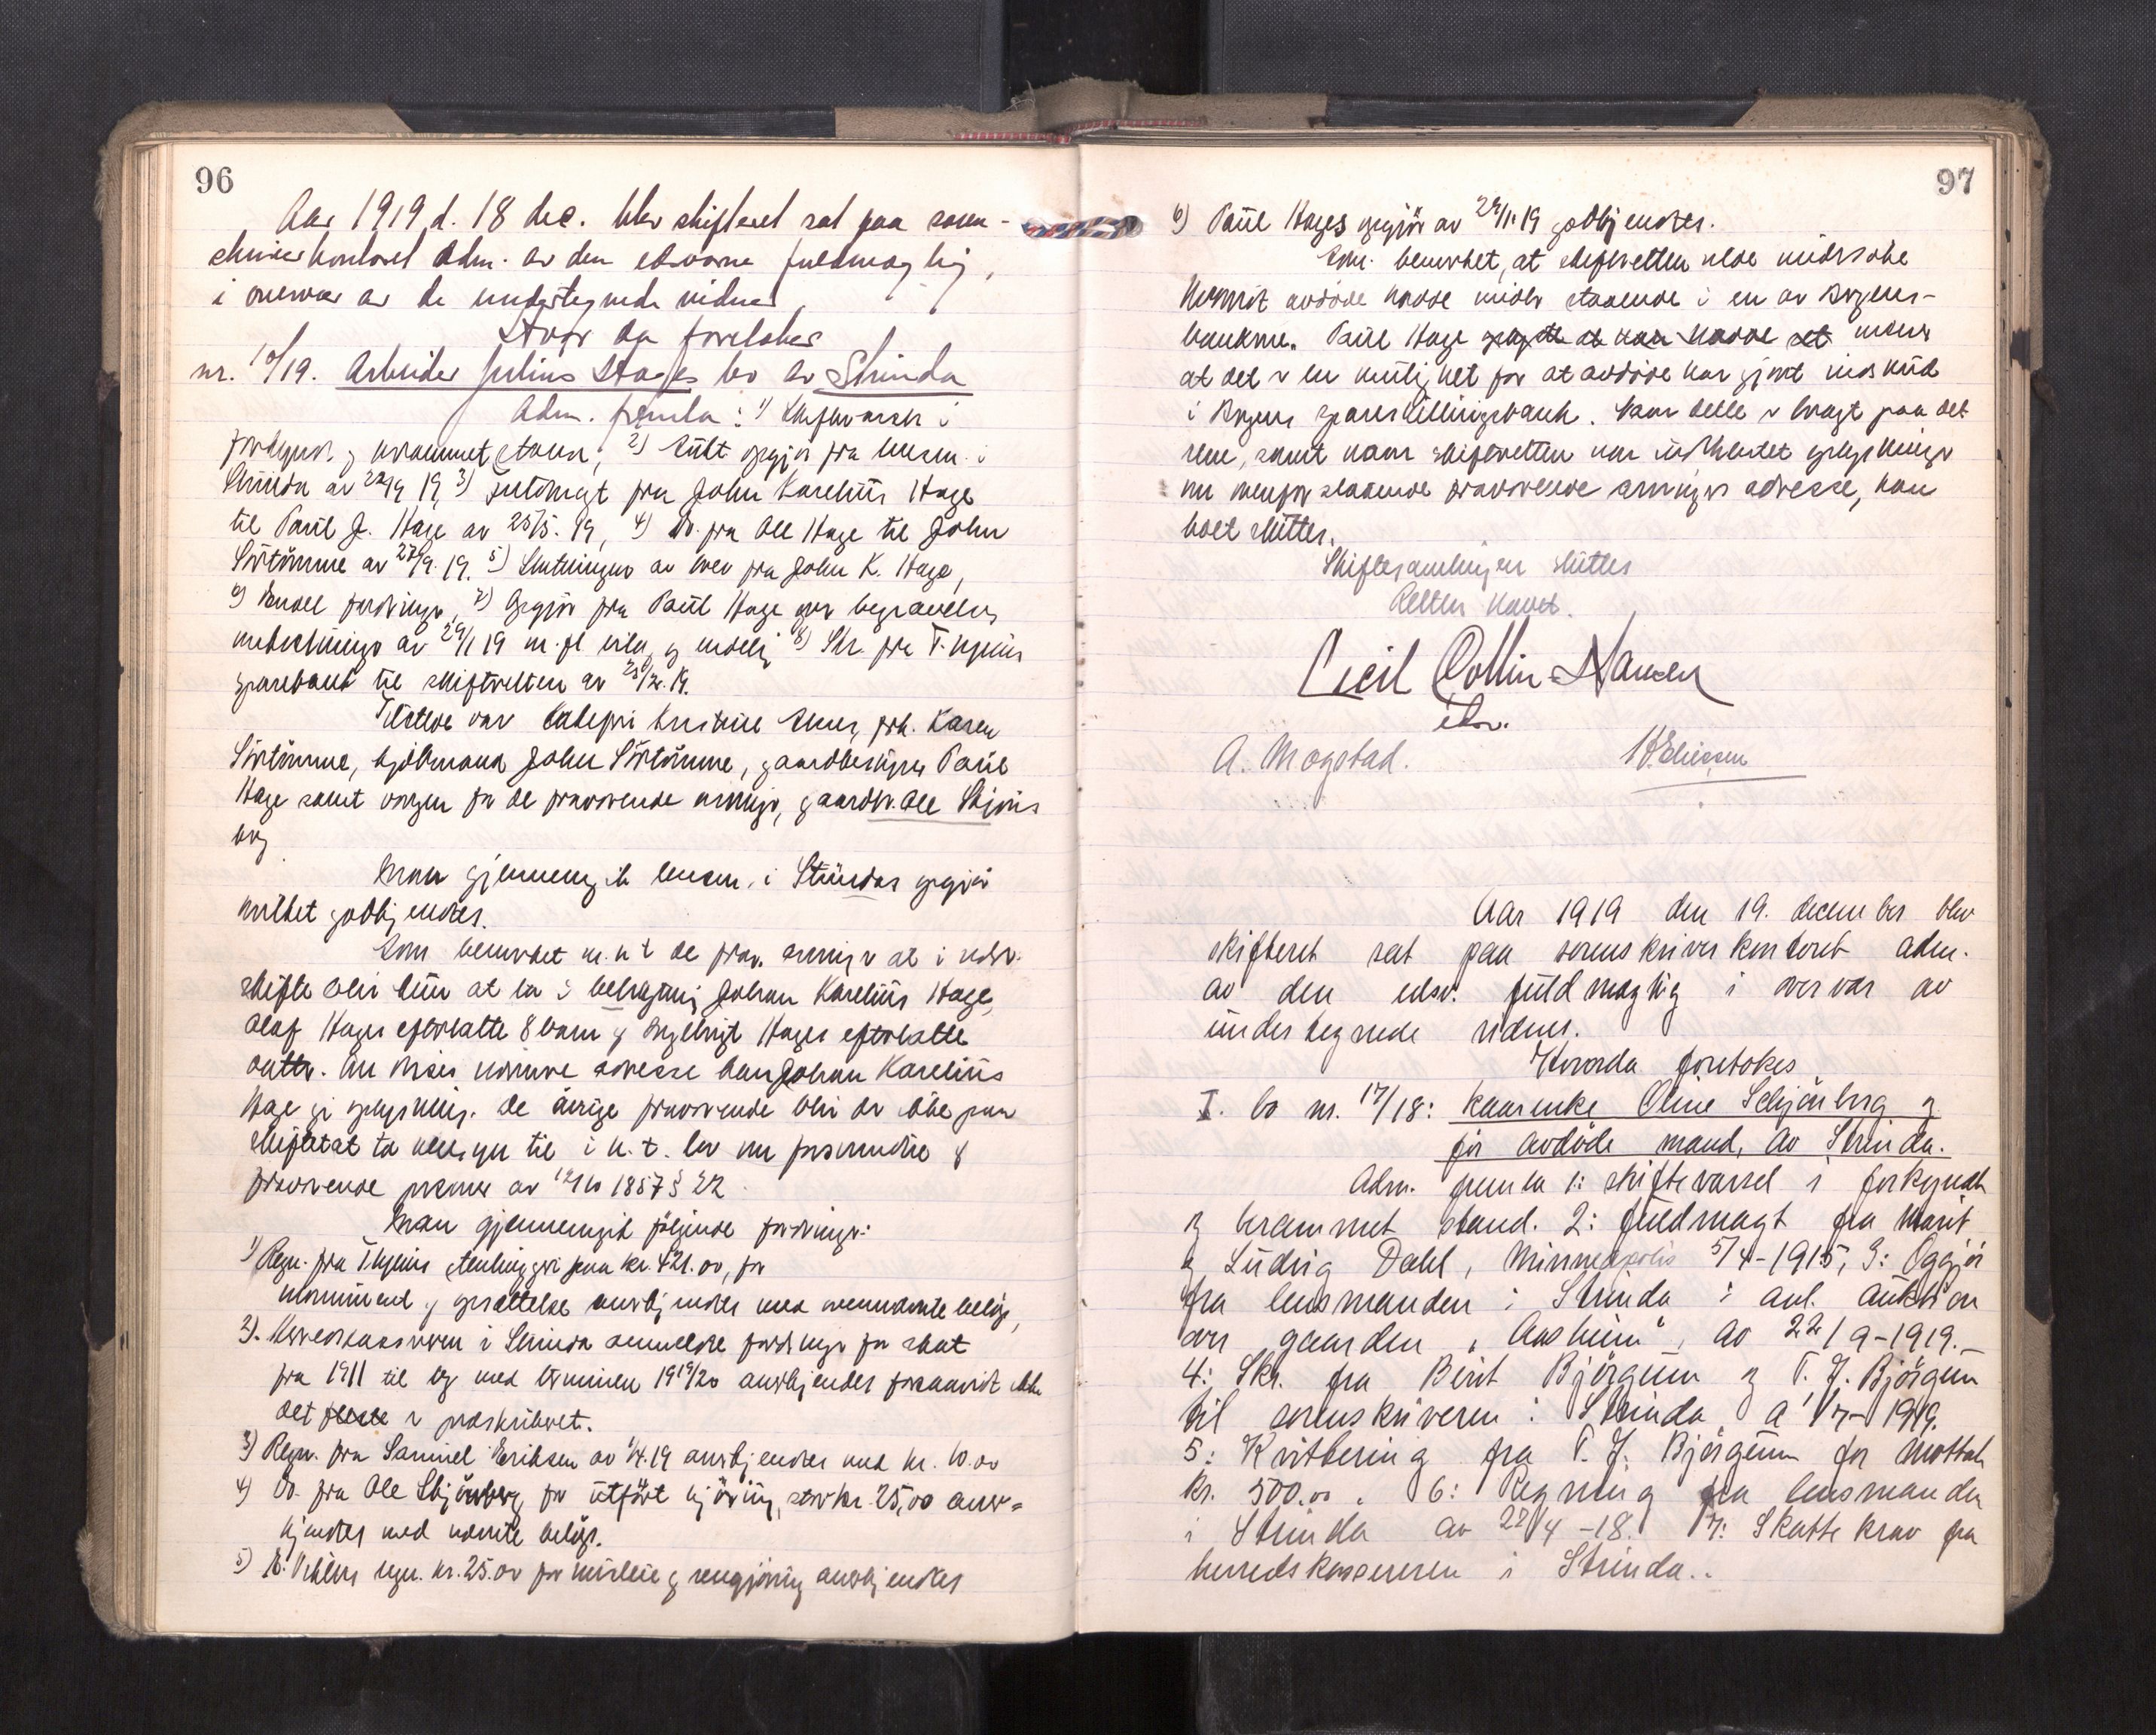 96
Aar 1919 d. 18 dec. blev skifteret sat paa soren-
skriverkontoret Adm. av den edsvorne fuldmægtig,
i overvær av de undertegnede vidner
Hvor da foretokes
nr. 10/19. Arbeider Julius Hages bo av Strinda
Adm. fremla: 1) Skiftevarsel i
forkyndt og berammet stand, 2) Aukt. opgjør fra lensm. i
Strinda av 22/9 19, 3) Fuldmagt fra John Karelius Hage
til Paul J. Hage av 25/5. 19, 4) Do. fra Ole Hage til John
Sörtömme av 27/9. 19. 5) Skrivelse av brev fra John K. Hage,
6) Anmeldte fordringer, 7) Opgjör fra Paul Hage over begravelses
omkostninger av 29/11 19 m. fl. bilag og endelig 8) Skr. fra T.hjems
sparebank til skifteretten av
Tilstede var Kristine frk. Karen
Sörtömme, hjólmand John Sörtömme, gaardbruger Paul
Hage samt vergen for de fraværende arvinger, gaardbr. Ole Skjöns
berg
Man gjennemgik lensm. i Strindas opgjör
hvilket godkjendtes.
Som bemerket m. h. t. de frav. arvinger at i nærv.
skifte blir kun at ta i betragtning Johan Karelius Hage,
Olaf Hages efterlatte 8 barn og Hages efterlatte
datter. Om disses nærmere adresse kan Johan Karelius
Hage gi oplysning. De övrige fraværende blir der ikke paa
skiftet at ta hensyn til i h. t. lov om forsvundne &
fraværende personer av 12/10 1857 § 22
Man gjennemgik fölgende fordringer:
1) Regn. fra T.hjems stenhuggeri paa kr. 421.00, for
monument og opsættelse anerkjendtes med ovennævnte belöp,
2). Herredskassereren i Strinda anmeldte fordringer for skat
fra 1911 til og med terminen 1919/20 anerkjendes forsaavidt ikke
det fleste er præskriberet.
3) Regn. fra Samuel Eriksen av 1/4. 19 anerkjendtes med kr. 10.00
4) Do. fra Ole Skjönberg for utfört kjöring, stor kr. 25,00 aner=
kjendtes med nævnte belöp.
5) regn. kr. 25.00 for husleie og rengjöring anerkjendtes
97
6) Paul Hages opgjör av 29/11 19 godkjendtes.
Adm. bemerket, at skifteretten vilde undersöke
hvorvidt avdöde hadde midler staaende i en av byens
bankene. Paul Hage mener
at det er en mulighet for at avdöde har gjort indskud
i byens spareskillingsbank. Naar dette er bragt paa det
rene, samt naar skifteretten har indhentet oplysninger
om ovenfor staaende fraværende arvingers adresse, kan
boet sluttes.
Skiftesamlingen sluttes
Retten hævet.
Cecil Collin-Hansen
edsv.
A. Mogstad.
Aar 1919 den 19. december blev
skifteret sat paa sorenskriverkontoret adm.
av den edsv. fuldmægtig i overvær av
undertegnede vidner.
Hvorda foretokes
I. bo nr. 17/18: kaarenke Oline Schjönberg og
för avdöde mand, av Strinda.
Adm. fremla 1: skiftevarsel i forkyndt
og berammet stand. 2: fuldmagt fra Marit
og Ludvig Dahl, Minneapolis 5/4-1915, 3: Opgjör
fra lensmanden i Strinda i anl. auktion
over gaarden "Aasheim", av 22/9-1919.
4: Skr. fra Berit Björgum og T. J. Björgum
til sorenskriveren i Strinda a 1/7-1919.
5: Kvittering fra T. J. Björgum for mottat
kr. 500.00. 6: Regning fra lensmanden
i Strinda av 22/4-18. 7: Skattekrav fra
herredskassereren i Strinda..